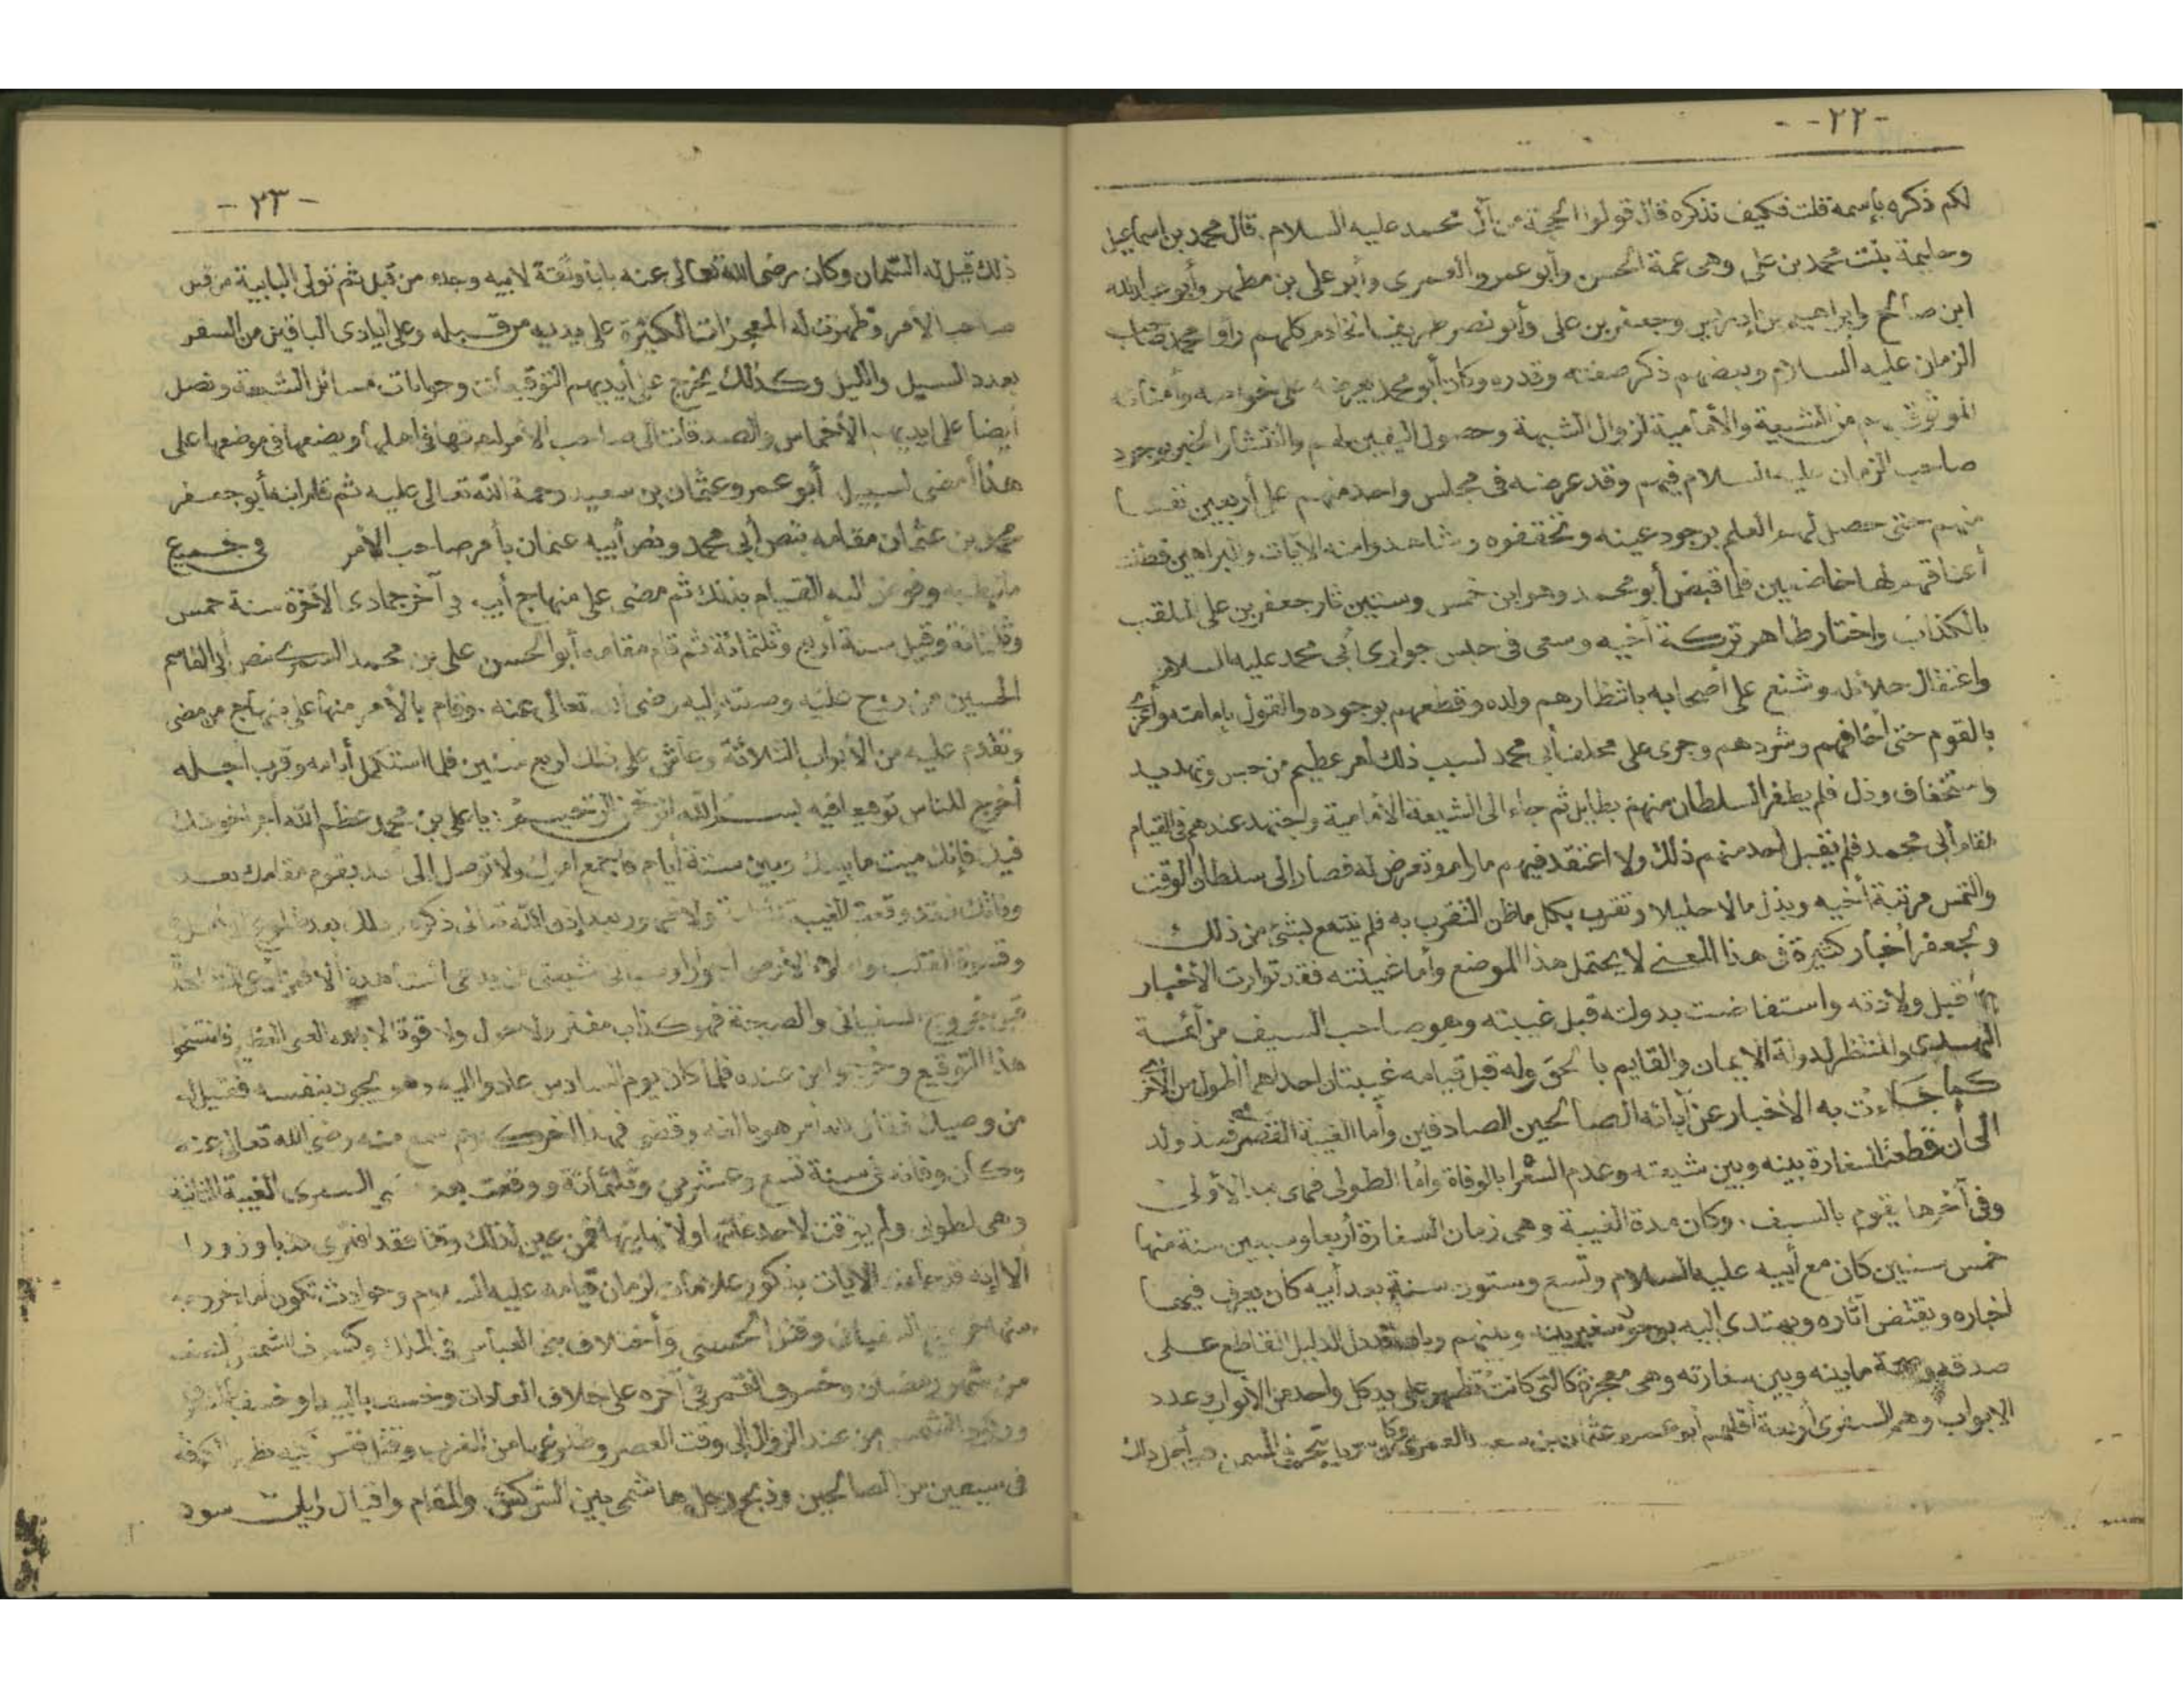 -٢٢-
لكم ذكره بإسمه قلت فكيف نذكره قال قولوا الحجة من آل محمد عليه السلام. قال محمد بن إسماعيل
وحليمة بنت محمد بن علي وهى عمة الحسن وأبو عمرو العمرى وأبو على بن مطهر وأبو عبد الله
ابن صالح وابراهيم بن إدريس وجعفر بن على وأبو نصر طريف الخادم كلهم رأوا محمد صاحب
الزمان عليه السلام وبعضهم ذكر صفته وقدره وكان أبو محمد يعرضه على خواصه وأمنائه
الموثوق بهم من الشيعة والأمامية لزوال الشبهة وحصول اليقين لهم والنتشار الخبر بوجود
صاحب الزمان عليه السلام فيهم وقد عرضه فى مجلس واحد منهم على أربعين نفسا
منهم حتى حصل لهم العلم بوجود عينه وتحققوه وشاهدوا منه الآيات والبراهين فظلت
أعناقهم لها خاضعين فلما قبض أبو محمد وهو ابن خمس وستين ثار جعفر بن على الملقب
بالكذاب واختار ظاهر تركة أخيه وسعى فى حبس جوارى أبى محمد عليه السلام
واعتقال حلائل وشنع على أصحابه بانتظارهم ولده وقطعهم بوجوده والقول بإمامته وأغرى
بالقوم حتى اخافهم وشردهم وجرى على مخلف أبى محمد لسبب ذلك أمر عظيم من حبس وتهديد
واستخفاف وذل فلم يظفر السلطان منهم بطايل ثم جاء الى الشيعة الأمامية واجتهد عندهم فى القيام
مقام أبى محمد فلم يقبل أحد منهم ذلك ولا اعتقد فيهم ما رامو تعرض له فصار الى سلطان الوقت
والتمس مرتبة أخيه وبذل مالا جليلا وتقرب بكل ما ظن التقرب به فلم ينتفع بشئ من ذلك
ولجعفر أخبار كثيرة فى هذا المعنى لا يحتمل هذا الموضع وأما غيبته فقد تواترت الأخبار
قبل ولادته واستفاضت بدولته قبل غيبته وهو صاحب السيف من أئمة
الهدى والمنتظر لدولة الايمان والقايم بالحق وله قبل قيامه غيبتان احداهما أطول من الأخرى
كما جاءت به الأخبار عن آبائه الصالحين الصادقين وأما الغيبة القصرى فمنذ ولد
الى أن قطعت السفارة بينه وبين شيعته وعدم السفرا بالوفاة وأما الطولى فهى بعد الأولى
وفى آخرها يقوم بالسيف. وكان مدة الغيبة وهى زمان السفارة أربعا وسبعين سنة منها
خمس سنين كان مع أبيه عليه السلام وتسع وستون سنة بعد أبيه كان يعرف فيها
اخباره ويقتفى آثاره ويهتدى اليه بوجود سفير بينه وبينهم دل الدليل القاطع على
صدقه وصحة ما بينه وبين سفارته وهى معجزة كالتى كانت تظهر على يد كل واحد من الأبواب وعدد
الابواب وهم السفرى أربعة أقلهم أبو عمرو عثمان بن سعيد العمرى وكان من أجل ذلك
-٢٣-
ذلك قيل له السمان وكان رضى الله تعالى عنه بابا وثقة لابيه وجده من قبل ثم تولى البابية من قبل
صاحب الأمر وظهرت له المعجزات الكثيرة على يديه من قبله وعلى أيادى الباقين من السفر
بعدد السيل والليل وكذلك يخرج على أيديهم التوقيعات وجوابات مسائل الشيعة وتصل
أيضا على ايديهم الأخماس والصدقات الى صاحب الأمر ليفرقها فى اهلها ويضعها فى موضعها على
هذا أمضى لسبيل أبو عمرو عثمان بن سعيد رحمة الله تعالى عليه ثم قام ابنه أبو جعفر
محمد بن عثمان مقامه بنص أبى محمد ونص أبيه عثمان بأمر صاحب الأمر فى جميع
وفوض اليه القيام بذلك ثم مضى على منهاج أبيه فى آخر جمادى الآخرة سنة خمس
وثلثمائة وقيل سنة أربع وثلثمائة ثم قام مقامه أبو الحسن على بن محمد السمرى بنص أبى القاسم
الحسين بن روح عليه وصيته إليه رضى الله تعالى عنه. وقام بالأمر منها على منهاج من مضى
وتقدم عليه من الأبواب الثلاثة وعاش على ذلك أربع سنين فلما استكمل أيامه وقرب أجله
أخرج للناس توقيعا فيه بسم الله الرحمن الرحيم: يا على بن محمد عظم الله أجر اخوانك
فيك فإنك ميت ما بينك وبين ستة أيام فاجمع أمرك ولا توصل إلى أحد يقوم مقامك بعد
وفاتك فقد وقعت الغيبة ولا ظهور بعد إذن الله تعالى ذكره وذلك بعد
وقسوة القلب وامتلاء الأرض جورا وسيأتى شيعتى من يدعى المشاهدة ألا فمن ادعى
قبل خروج السفيانى والصيحة فهو كذاب مفتر ولا حول ولا قوة الا بالله العلى العظيم فانتسخوا
هذا التوقيع وخرجوا من عنده فلما كان يوم السادس عادوا اليه وهو يجود بنفسه فقيل له
من وصيك فقال لله أمر هو بالغه وقضى فهذا اخر كلام سمع منه رضى الله تعالى عنه
وكان وفاته فى سنة تسع وعشرين وثلثمائة ووقعت بعد السمرى الغيبة الثانية
وهى الطولى ولم يوقت لاحد غايتها ولا نهايتها فمن عين لذلك وقتا فقد افترى كذبا وزورا
ألا إنه قد جاءت الايات بذكور علامات لزمان قيامه عليه السلام وحوادث تكون أمام خروجه
منها خروج السفيانى وقتل الحسنى وأختلاف بنى العباس فى الملك وكسوف الشمس لنصف
من شهر رمضان وخسوف القمر فى آخره على خلاف العادات وخسف بالبيداء وخسف
وركود الشمس من عند الزوال إلى وقت العصر وطلوعها من المغرب وقتل نفس زكيه بظهر الكوفة
فى سبعين من الصالحين وذبح رجل هاشمى بين الركن والمقام واقبال رايات سود